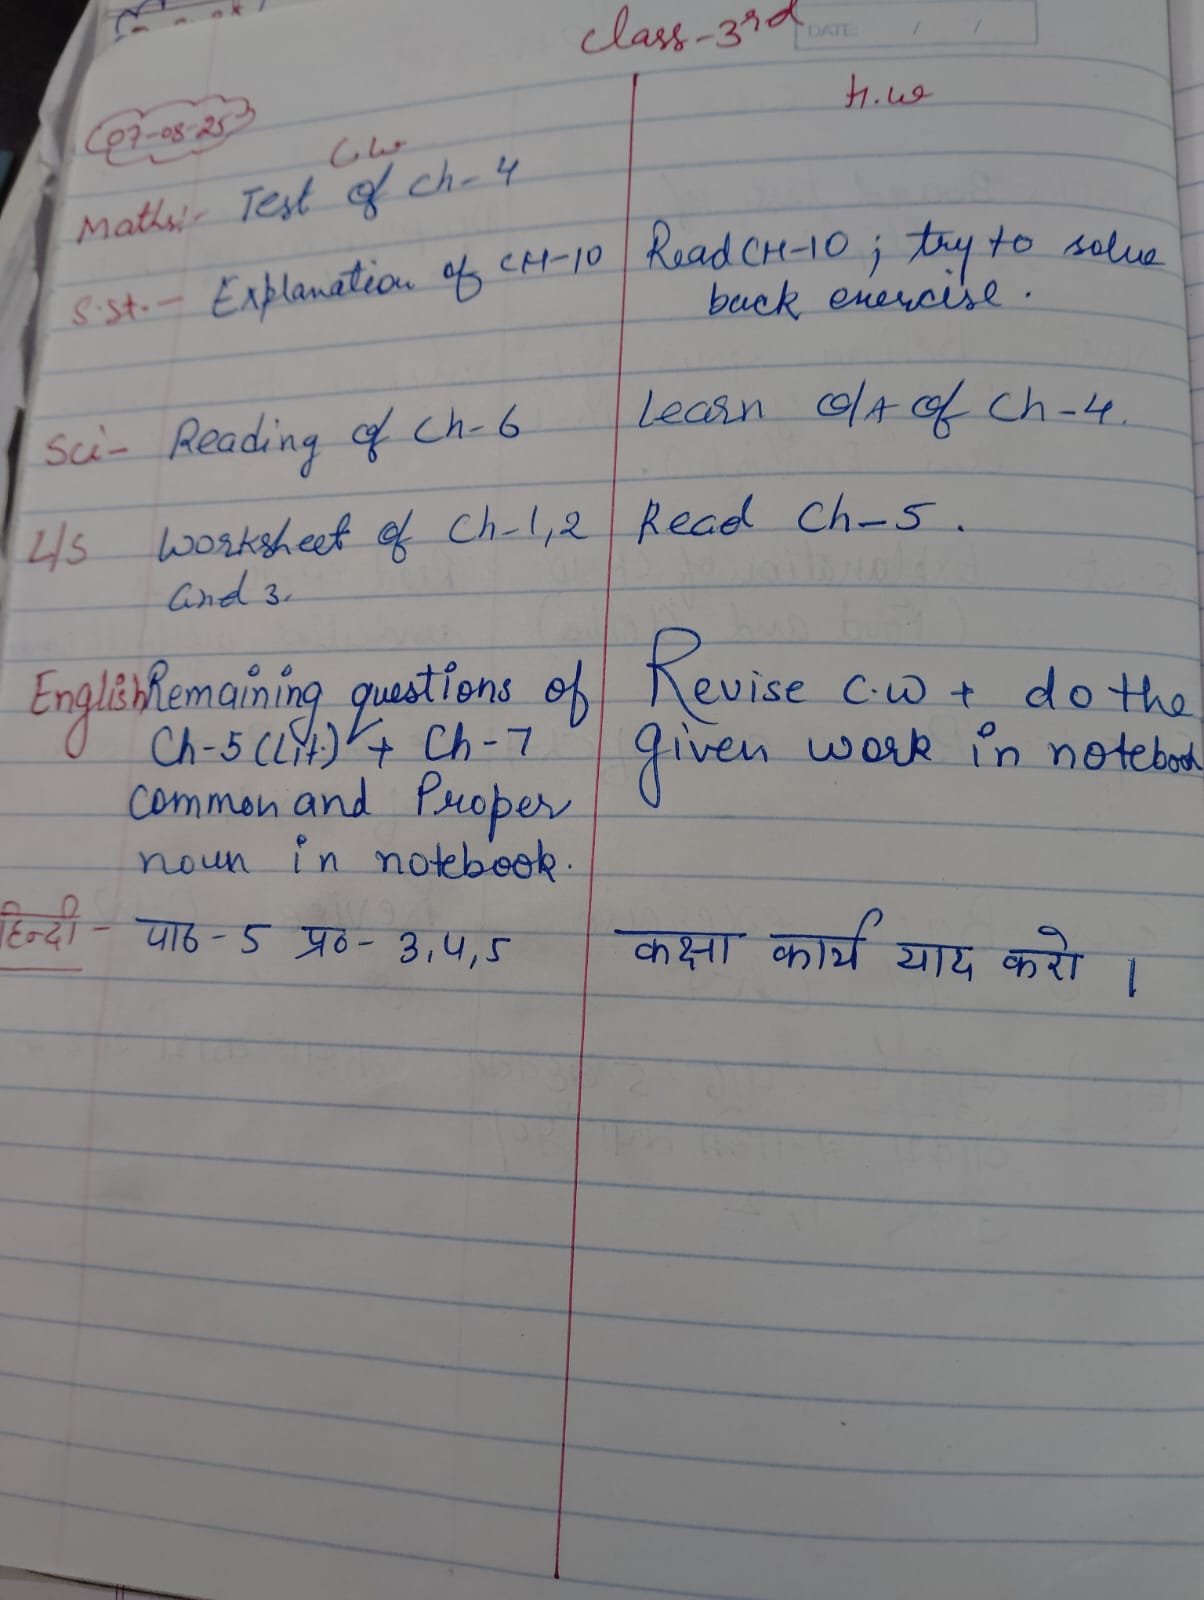 Class-3rd
DATE: / /
H.W
07-08-25
C.W
Maths:- Test of Ch-4
S.St.- Explanation of CH-10 Read CH-10 ; try to solve
back exercise.
Sci- Reading of Ch-6 Learn Q/A of Ch-4.
L/S Worksheet of Ch-1,2 Read Ch-5.
and 3.
English Remaining questions of Revise C.W + do the
Ch-5 (Lit.) + Ch-7 given work in notebook
Common and Proper
noun in notebook.
हिन्दी - पाठ-5 प्र०- 3,4,5 कक्षा कार्य याद करो ।